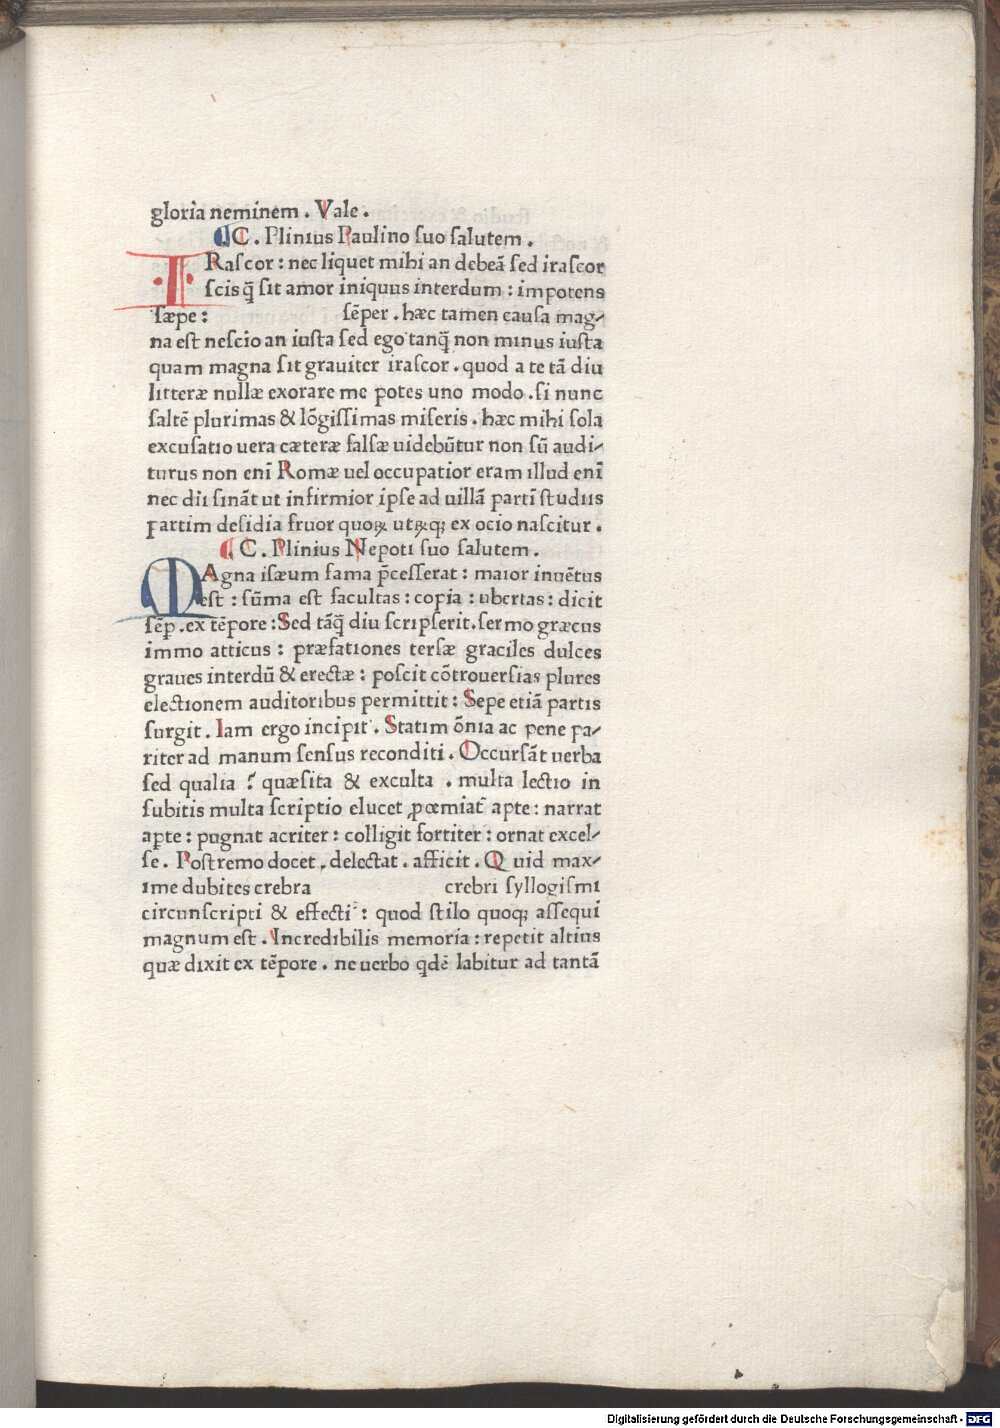 gloria neminem . Vale .
C . Plinius Paulino suo salutem .
IRascor : nec liquet mihi an debeã sed irascor
scis q̃ sit amor iniquus interdum : impotens
sæpe : sẽper . hæc tamen causa mag-
na est nescio an iusta sed ego tanq̃ non minus iusta
quam magna sit grauiter irascor . quod a te tã diu
litteræ nullæ exorare me potes uno modo . si nunc
saltẽ plurimas & lõgissimas miseris . hæc mihi sola
excusatio uera cæteræ falsæ uidebũtur non sũ audi-
turus non enĩ Romæ uel occupatior eram illud enĩ
nec dii sinãt ut infirmior ipse ad uillã partĩ studiis
partim desidia fruor quoꝝ utrũqꝫ ex ocio nascitur .
C . Plinius Nepoti suo salutem .
MAgna isæum fama p̃cesserat : maior inuẽtus
est : sũma est facultas : copia : ubertas : dicit
sẽp . ex tẽpore : Sed tãq̃ diu scripserit . sermo græcus
immo atticus : præfationes tersæ graciles dulces
graues interdũ & erectæ : poscit cõtrouersias plures
electionem auditoribus permittit : Sepe etiã partis
surgit . Iam ergo incipit . Statim õnia ac pene pa-
riter ad manum sensus reconditi . Occursãt uerba
sed qualia ? quæsita & exculta . multa lectio in
subitis multa scriptio elucet ꝓœmiat̃ apte : narrat
apte : pugnat acriter : colligit fortiter : ornat excel-
se . Postremo docet . delectat . afficit . Quid max-
ime dubites crebra crebri syllogismi
circunscripti & effecti : quod stilo quoqꝫ assequi
magnum est . Incredibilis memoria : repetit altius
quæ dixit ex tẽpore . ne uerbo qdẽ labitur ad tantã
Digitalisierung gefördert durch die Deutsche Forschungsgemeinschaft - DFG